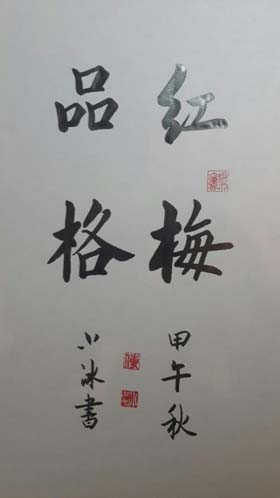 红梅
品格
甲午秋
小冰書